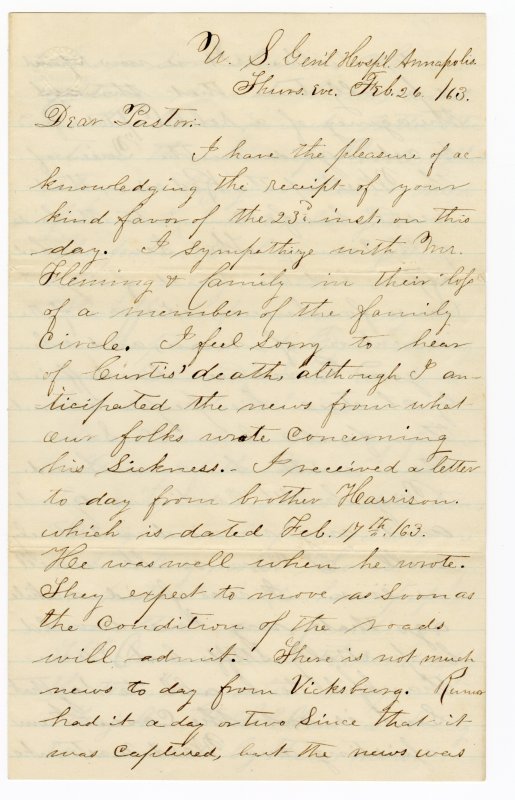 U. S. Gen'l Hospl. Annapolis.
Thurs. Eve. Feb. 26. /63.
Dear Pastor:
I have the pleasure of ac-
knowledging the receipt of your
kind favor of the 23d. inst, on this
day. I sympathize with Mr.
Fleming & family in their loss
of a member of the family
circle. I feel sorry to hear
of Curtis' death, although I an-
ticipated the news from what
our folks wrote concerning
his sickness.- I received a letter
to day from brother Harrison.
which is dated Feb. 17th. /63.
He was well when he wrote.
They expect to move as soon as
the condition of the roads
will admit.- There is not much
news to day from Vicksburg. Rumor
had it a day or two since that it
was captured, but the news was